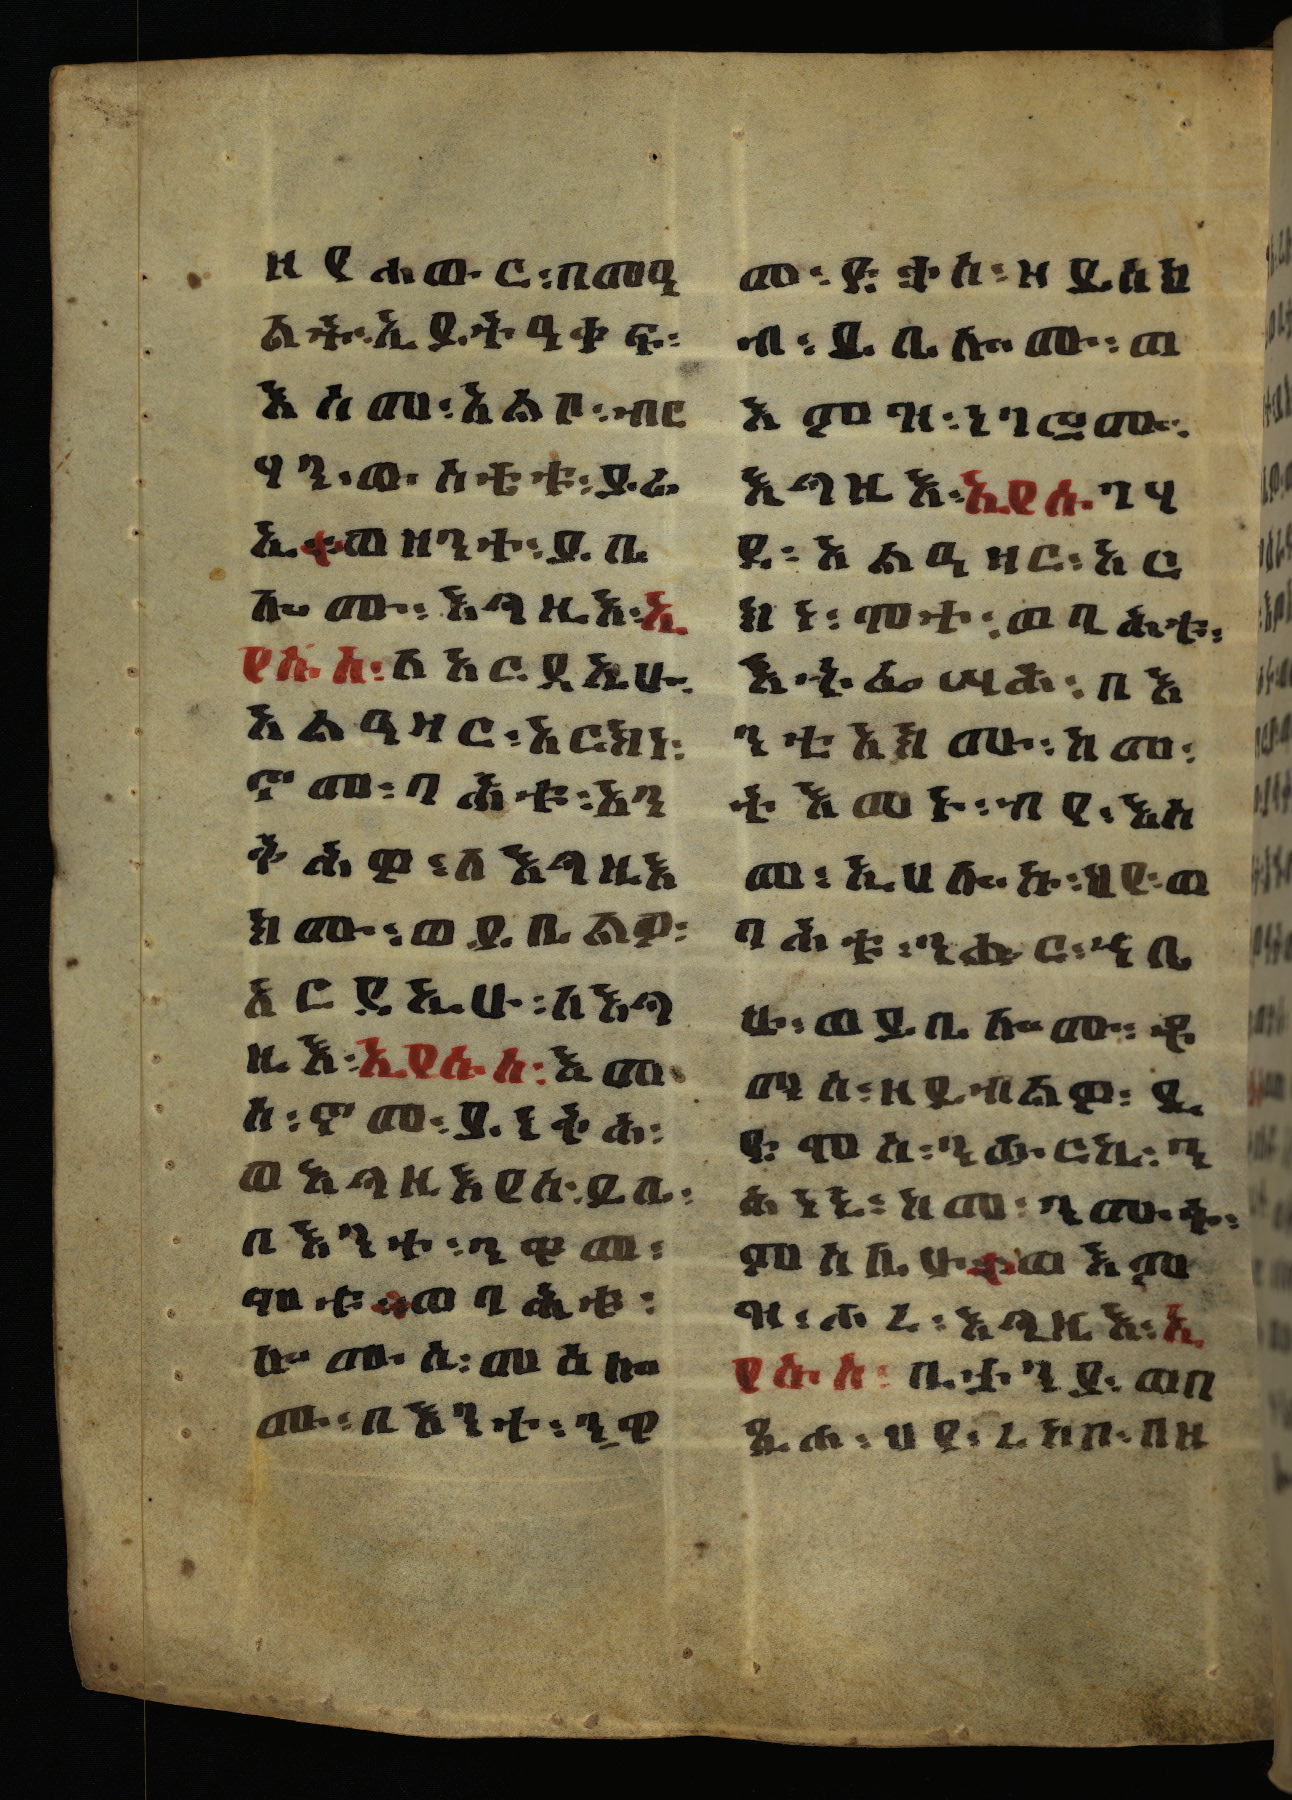 ዘየሐውር፡በመዓ
ልት፡ኢይትዓቀፍ፡
እስመ፡አልቦ፡ብር
ሃን፡ውስቴቱ፡ይሬ
ኢ።ወዘንተ፡ይቤ
ሎሙ፡እግዚእ፡ኢ
የሱስ፡ለአርዳኢሁ፡
አልዓዛር፡አርክነ፡
ኖመ፡ባሕቱ፡አን
ለእግዚአ
ክሙ፡ወይቤልዎ፡
አርዳኢሁ፡ለእግ
ዚእ፡ኢየሱስ፡እመ
ሰ፡ኖመ፡ይነቅህ፡
ወእግዚእየሱ፡ይቤ፡
በእንተ፡ንዋመ፡
ሞቱ።ወባሕቱ፡
ቦሙሰ፡መስሎ
ሙ፡በእንተ፡ንዋ
መ፡ድቃስ፡ዘይሰክ
ብ፡ይቤሎሙ፡ወ
እምዝ፡ነገሮሙ፡
እግዚእ፡ኢየሱስ፡ገሃ
ደ፡አልዓዛር፡አር
ክነ፡ሞተ፡ወባሕቱ፡
እትፌሣሕ፡በእ
ንቲአክሙ፡ከመ፡
ትእመኑ፡ብየ፡እስ
መ፡ኢሀሎኩ፡ህየ፡ወ
ባሕቱ፡ንሑር፡ኀቤ
ሁ፡ወይቤሎሙ፡ቶ
ማስ፡ዘይብልዎ፡ዲ
ዲሞስ፡ንሑርኬ፡ን
ሕነኒ፡ከመ፡ንሙት፡
ምስሌሁ።ወእም
ዝ፡ሖረ፡እግዚእ፡ኢ
የሱስ፡ቢታንያ፡ወበ
ጺሖ፡ህየ፡ረከቦ፡በዘ